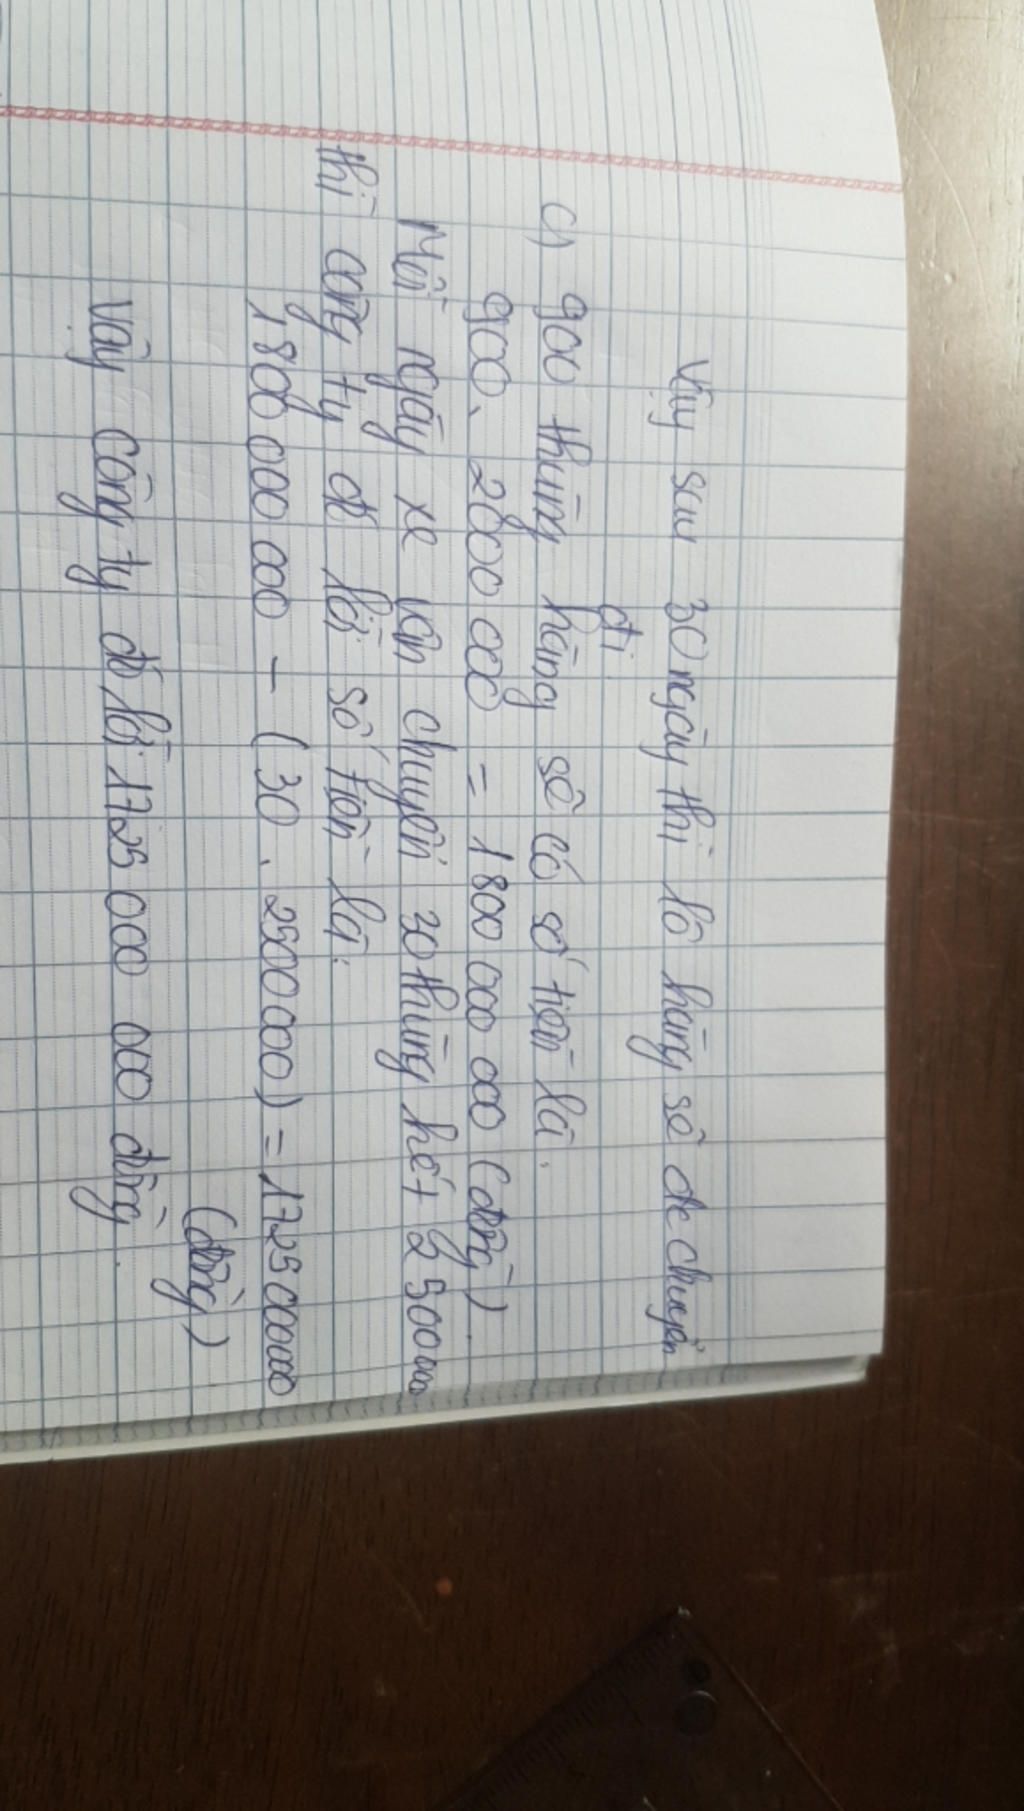 Vậy sau 30 ngày thì lô hàng sẽ đc chuyển
đi
c) 900 thùng hàng sẽ có số tiền là:
900. 2000 000 = 1800 000 000 (đồng).
Mỗi ngày xe vận chuyển 30 thùng hết 2 500 000
thì công ty đó lời số tiền là:
1800 000 000 - (30. 2500 000) = 1725 000000
(đồng)
Vậy công ty đó lời 1725 000 000 đồng.